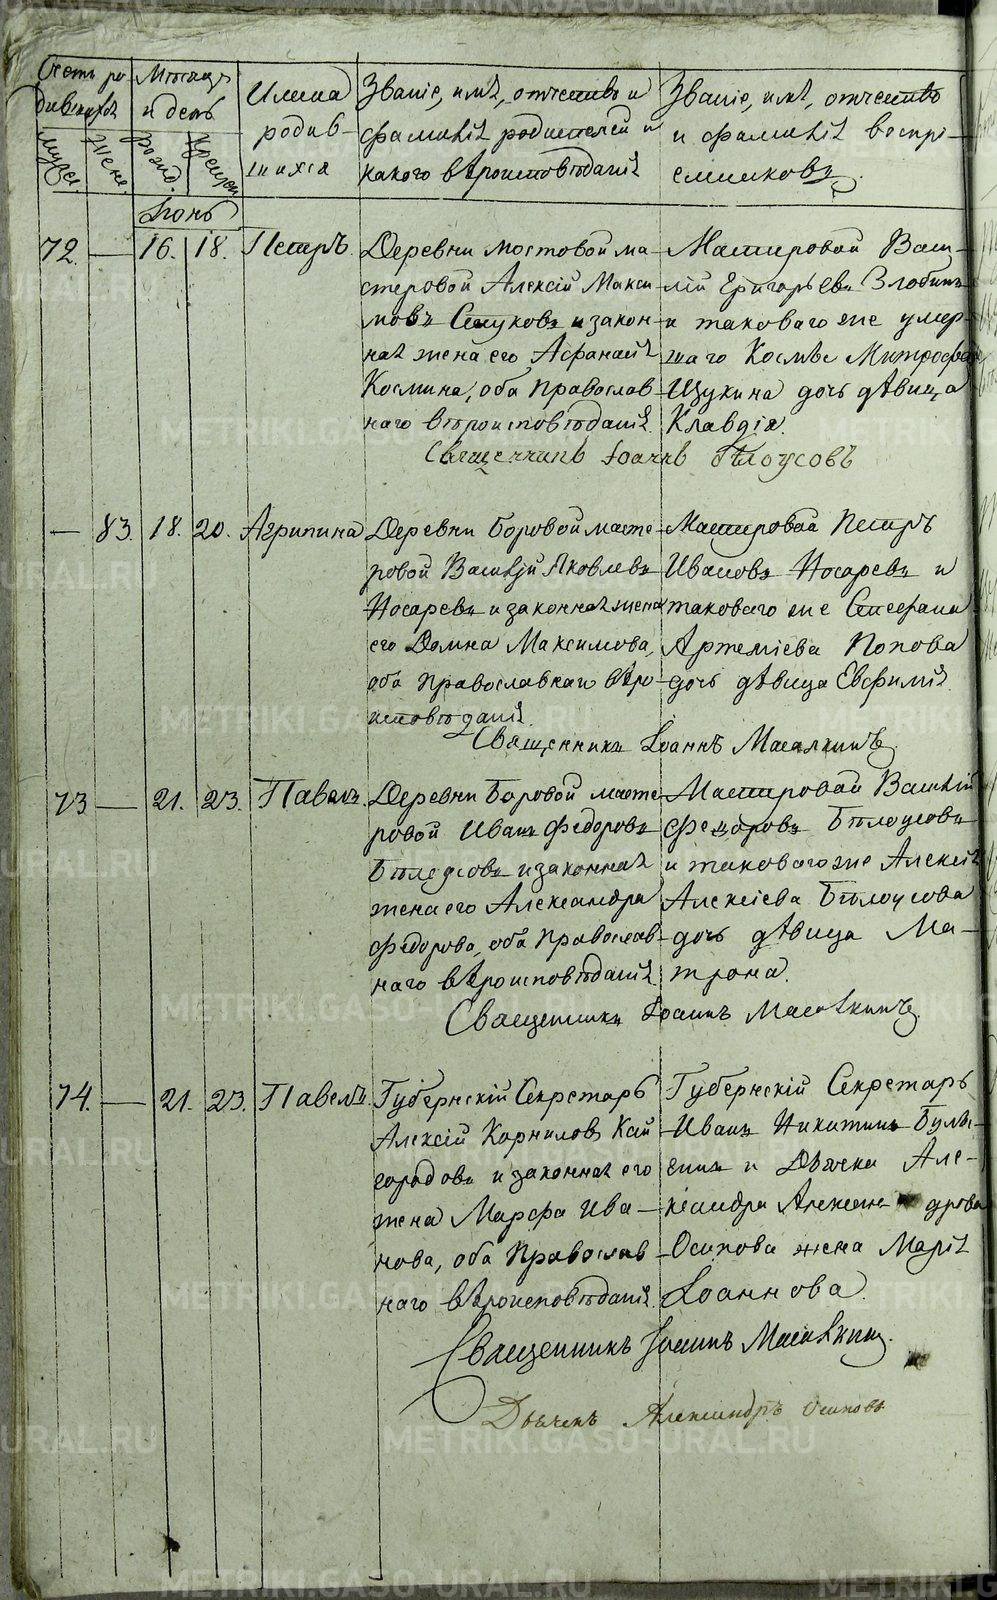 Счетъ ро
дившихся
Мѣсяцъ
и день
Имена
родив-
шихся
Званіе, имя, отчество и
фамилія родителей и
какого вѣроисповѣданія
Званіе, имя, отчество
и фамилія воспрі-
емниковъ
мужес.
жене.
рожд.
крещен
Іюнь
72. — 16. 18. Петръ.
Деревни Мостовой ма-
стеровой Алексій Макси
мовъ и закон-
ная жена его Афанасія
Космина, оба православ
наго вѣроисповѣданія.
Мастеровой Васи-
лій Григорьевъ Злобинъ
и таковаго же умер-
шаго Космы Митрофа
Щукина дочь дѣвица
Клавдія.
Священникъ Іоаннъ Бѣлоусовъ
— 83. 18. 20. Агрипина
Деревни Боровой масте-
ровой Василій Яковлевъ
Носаревъ и законная жена
его Домна Максимова,
оба православнаго вѣро-
исповѣданія.
Мастеровой Петръ
Ивановъ Носаревъ и
таковаго же Стефана
Артеміева Попова
дочь дѣвица Евфимія.
Священникъ Іоаннъ Масалкинъ
73 — 21. 23. Павелъ.
Деревни Боровой масте-
ровой Иванъ Федоровъ
Бѣлоусовъ и законная
жена его Александра
Федорова, оба православ-
наго вѣроисповѣданія
Мастеровой Василій
Федоровъ Бѣлоусовъ
и таковаго же Алексія
Алексіева Бѣлоусова
дочь дѣвица Ма-
трона.
Священникъ Іоаннъ Масалкинъ
74. — 21. 23. Павелъ
Губернскій Секретарь
Алексій Корниловъ Кай
городовъ и законная его
жена Марфа Ива-
нова, оба Православ-
наго вѣроисповѣданія.
Губернскій Секретарь
Иванъ Никитинъ Булы-
гинъ и Дьячка Але-
ксандра Александрова
Осипова жена Марія
Іоаннова.
Священникъ Іоаннъ Масалкинъ.
Дьячекъ Александръ Осиповъ
METRIKI.GASO-URAL.RU